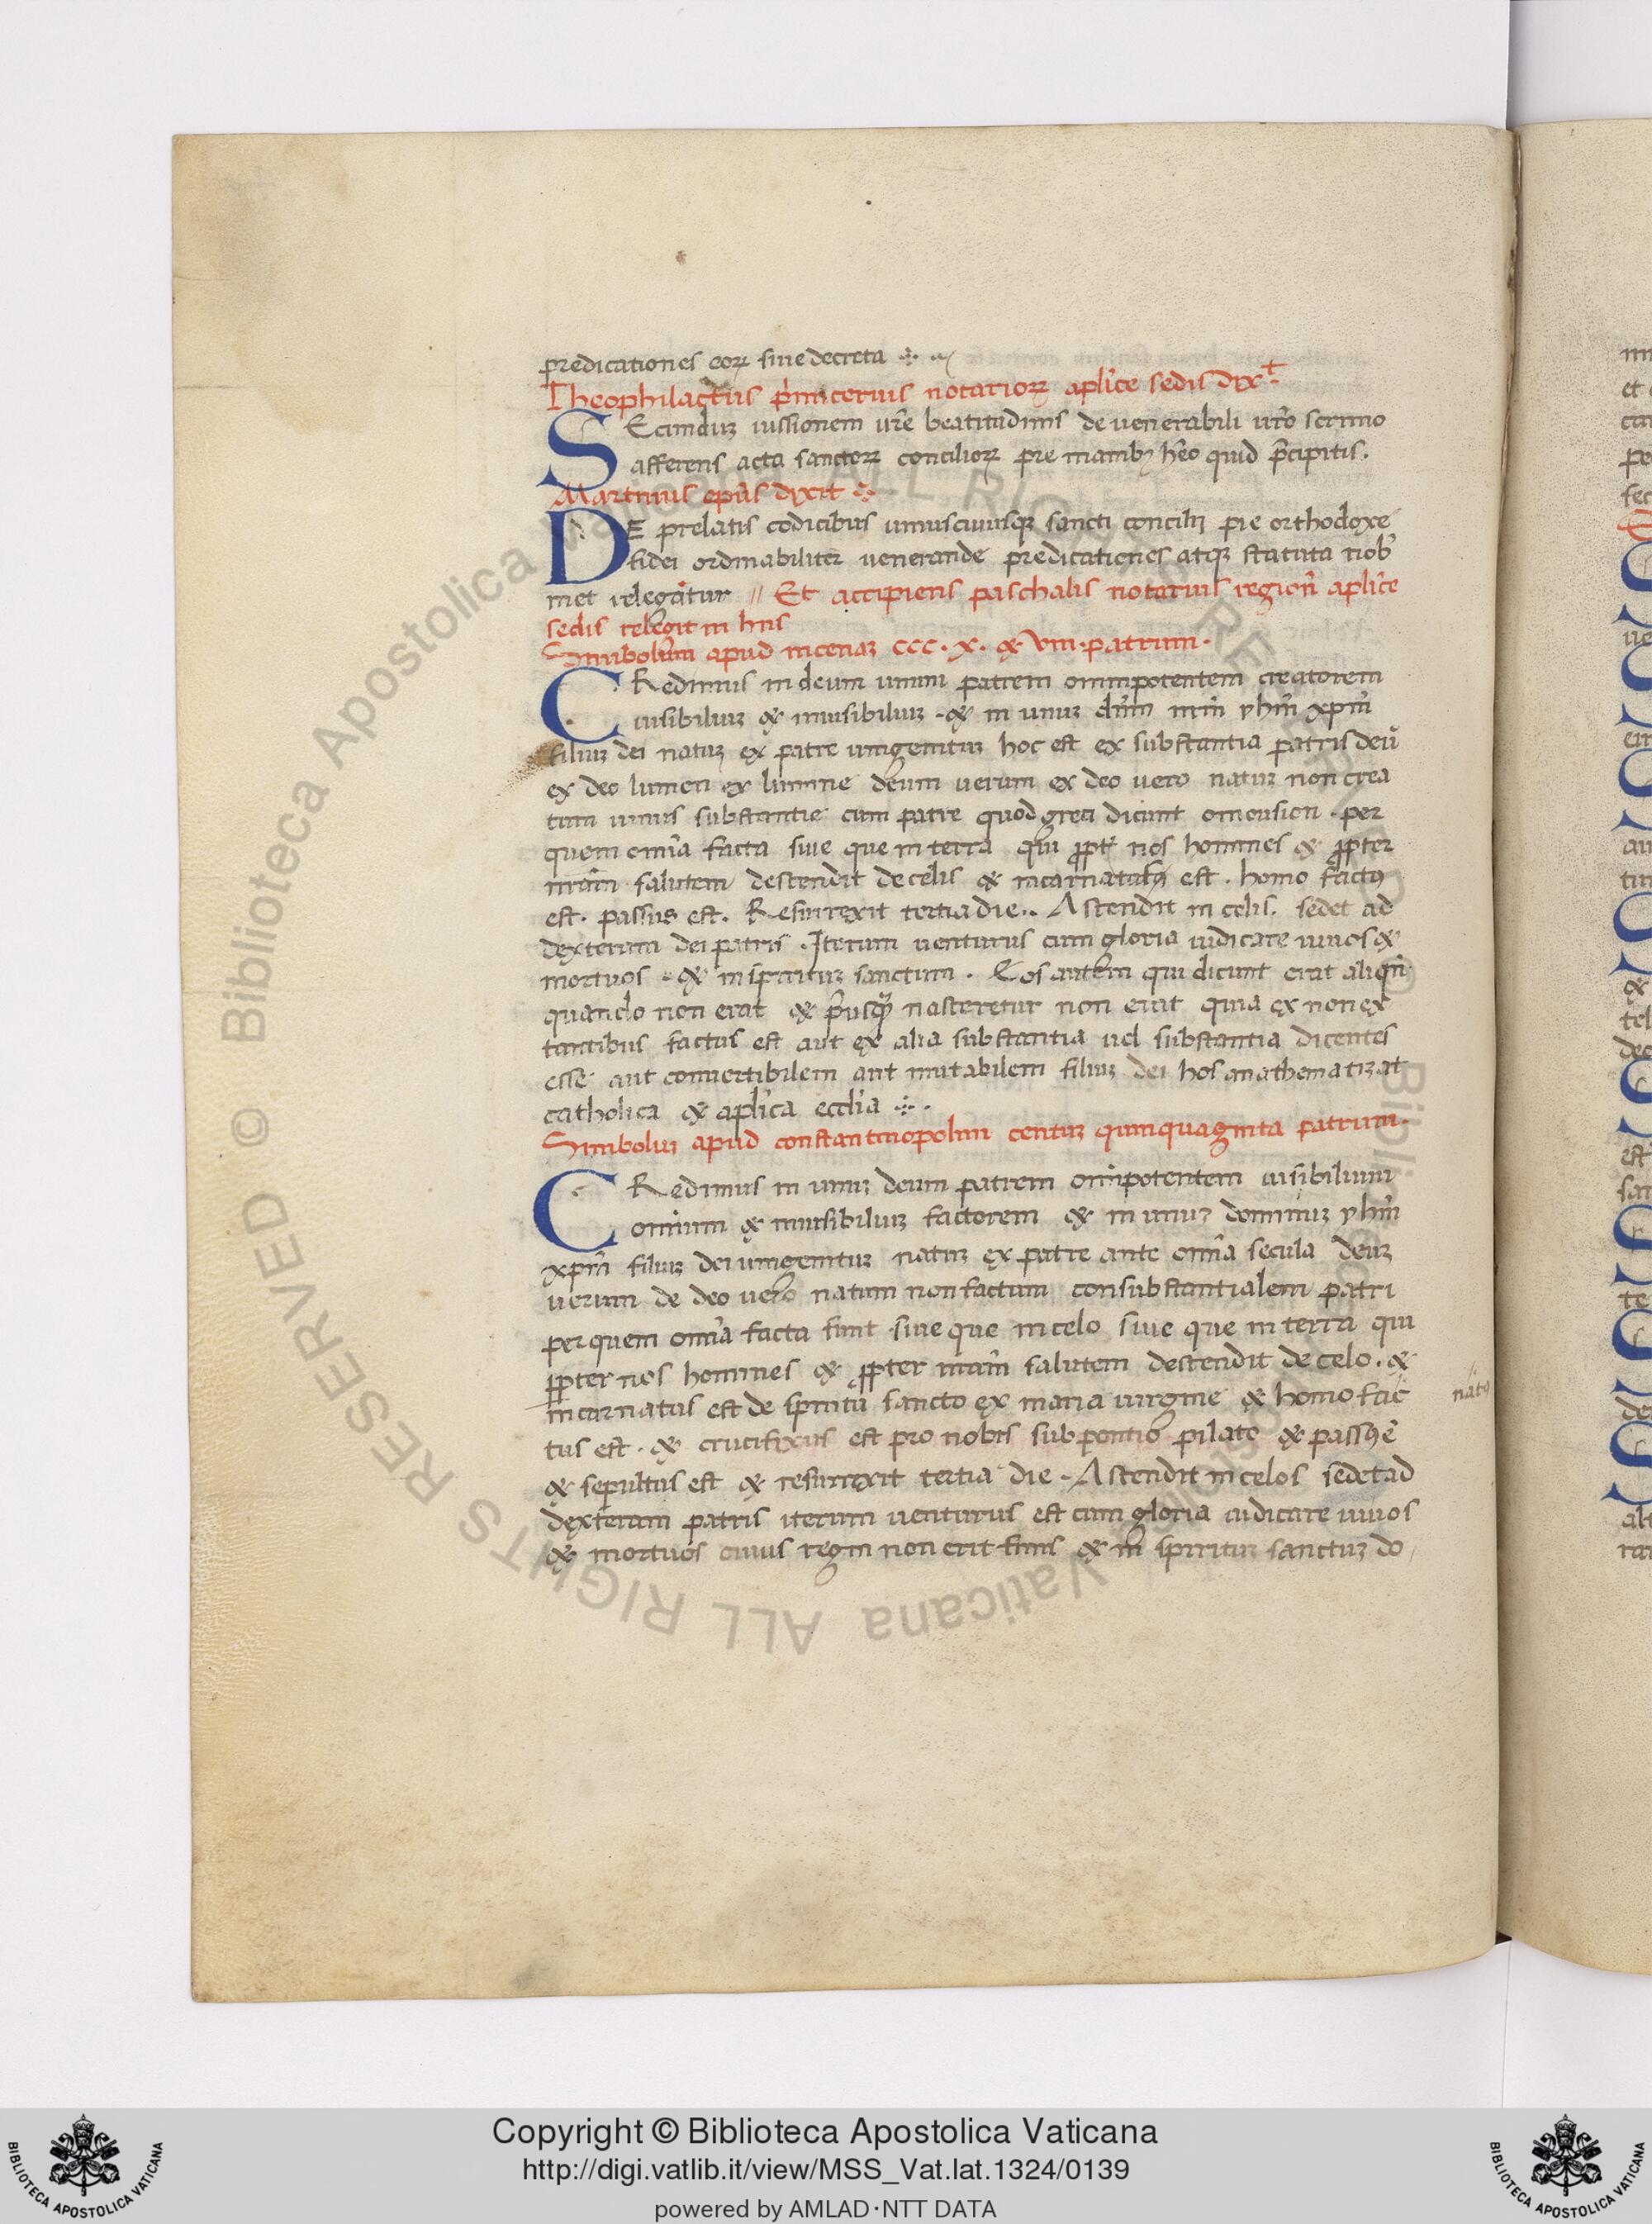 predicationes eoꝝ siue decreta
Theophilactus p̄micerius notarioꝝ aplice sedis dixt
SEcunduꝫ iussionem ur̄e beatitudinis de uenerabili ur̄o scrinio
afferens acta sanctoꝝ concilioꝝ pre manibꝫ hēo quid p̄cipitis.
Martinus ep̄us dixit
DE prelatis codicibus uniuscuiusqꝫ sancti concilij pie orthodoxe
fidei ordinabiliter uenerande predicationes atqꝫ statuta nob̄
met relegātur // Et accipiens paschalis notarius region̄ aplice
sedis relegit in hiis
Simbolum apud niceнaꝫ ccc. x. & viii. patrum.
CRedimus in deum unum patrem omnipotentem creatorem
uisibiliuꝫ & inuisibiliuꝫ . & in unuꝫ dn̄m nr̄m yhm̄ xpm̄
filiuꝫ dei natuꝫ ex patre unigenituꝫ hoc est ex substantia patris deū
ex deo lumen ex lumine deum uerum ex deo uero natuꝫ non crea
tum unius substantie cum patre quod greci dicunt omousion . per
quem om̄ia facta siue que in terra qui ꝓpt̄ nos homines & ꝓpter
nr̄am salutem descendit de celis & incarnatus est . homo factꝰ
est . passus est . Resurrexit tertia die .. Ascendit in celis . sedet ad
dexteram dei patris . Iterum uenturus cum gloria iudicare uiuos &
mortuos . & in spirituꝫ sanctum . Eos autem qui dicunt erat aliqn̄
quando non erat & p̄usqꝫ nasceretur non erat quia ex non ex
tantibus factus est aut ex alia substantia uel substantia dicentes
esse aut conuertibilem aut mutabilem filiuꝫ dei hos anathematizat
catholica & aplica ecclīa
Simboluꝫ apud constantinopolim centuꝫ quinquaginta patrum.
CRedimus in unuꝫ deum patrem om̄ipotentem uisibilium
omnium & inuisibiliuꝫ factorem & in unuꝫ dominuꝫ yhm̄
xpm̄ filiuꝫ dei unigenituꝫ natuꝫ ex patre ante om̄ia secula deuꝫ
uerum de deo uero natum non factum consubstantialem patri
per quem om̄ia facta sunt siue que in celo siue que in terra qui
ꝓpter nos homines & ꝓpter nr̄am salutem descendit de celo . &
incarnatus est de spiritu sancto ex maria uirgine & homo fac
natꝰ
tus est . & crucifixus est pro nobis sub pontio pilato & passꝰ ē
& sepultus est & resurrexit tertia die . Ascendit in celos sedet ad
dexteram patris iterum uenturus est cum gloria iudicare uiuos
& mortuos cuius regni non erit finis & in spirituꝫ sanctuꝫ do
Biblioteca Apostolica Vaticana ALL RIGHTS RESERVED ©
Copyright © Biblioteca Apostolica Vaticana
http://digi.vatlib.it/view/MSS_Vat.lat.1324/0139
powered by AMLAD·NTT DATA
BIBLIOTECA APOSTOLICA VATICANA
BIBLIOTECA APOSTOLICA VATICANA